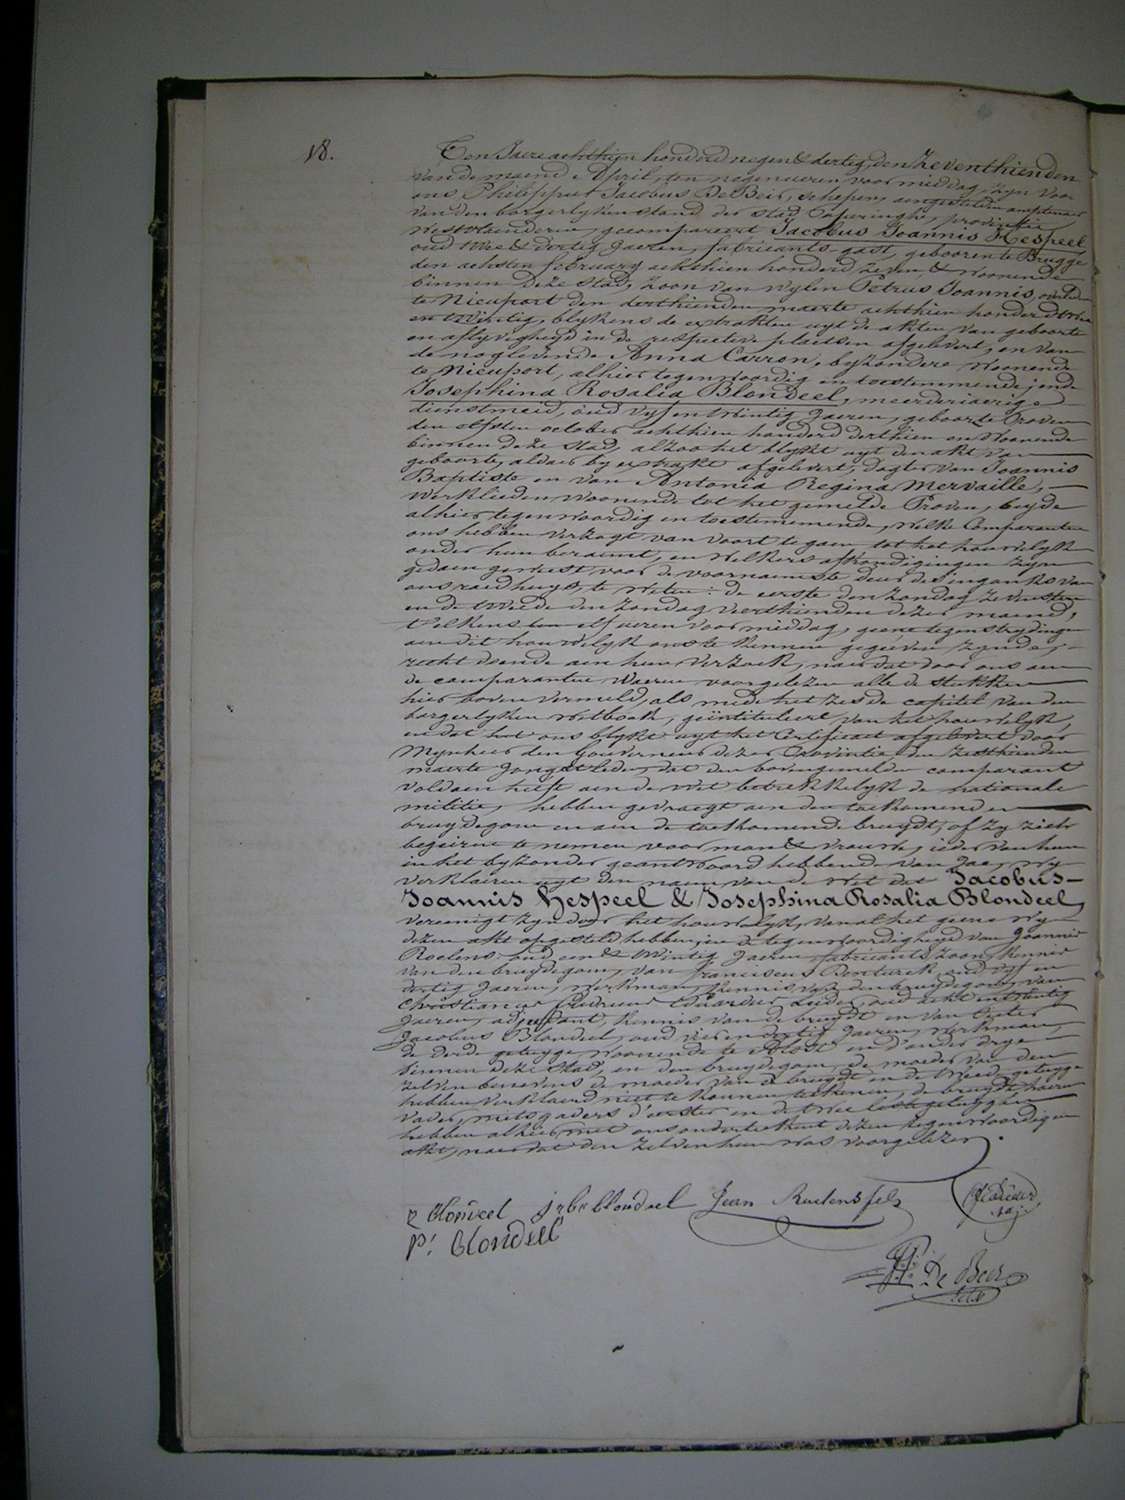 18.
Ten Jaere achthien honderd negen & dertig, den Zeventhienden
van de maend April, ten negen uren voor middag, zyn voor
ons Philippus Jacobus De Beir, schepen, aengestelden amptenaer
van den borgerlyken stand der stad Poperinghe, provintie
Westvlaenderen, gecompareert Jacobus Joannis Hespeel
oud twee & dertig Jaeren, fabricants gast, gebooren te Brugge
den achsten february achthien honderd zeven & woonende
binnen deze stad, zoon van wylen Petrus Joannis, overleden
te Nieuport den derthienden maerte achthien honderd drie
en twintig, blykens de extrakten uyt de akten van geboorte
en aflyvigheyd in de respective plaetsen afgelevert, en van
de nog levende Anna Carron, byzondere woonende
te Nieuport, alhier tegenwoordig en toestemmende; ende
Josephina Rosalia Blondeel, meerderjaerige
dienstmeid, oud vyf en twintig Jaeren, geboorte Proven
den elfsten october achthien honderd derthien en woonende
binnen deze stad, alzoo het blykt uyt den akt van
geboorte, aldaer by extrakt afgelevert, dogter van Joannis
Baptiste en van Antonia Regina Mervaille,
werklieden woonende tot het gemelde Proven, beyde
alhier tegenwoordig en toestemmende, welke Comparanten
ons hebben verzogt van voort te gaen tot het houwelyk
onder hun beraemt, en welkers afkondigingen zyn
gedaen geweest voor de voornaemste deur des ingangks van
ons raedhuys, te weten: de eerste den zondag zevensten
en de tweede den zondag veerthienden dezer maend,
telkens ten elf uren voor middag, geene tegenstrydingen
aen dit houwelyk ons te kennen gegeven zynde,
recht doende aen hun verzoek, naer dat door ons aen
de comparanten waeren voorgelezen alle de stukken
hier boven vermeld, als mede het zesde capitel van den
borgerlyken wetboek, geïntituleert van het houwelyk,
en dat het ons blykt uyt het Certificaet afgelevert door
Mynheer den Gouverneur dezer Provintie den zesthienden
maerte jongstleden, dat den bovengemelden comparant
voldaen heeft aen de wet betrekkelyk de nationale
militie, hebben gevraegt aen den toekomenden
bruydegom en aen de toekomende bruydt, of zy zich
begeiren te nemen voor man & vrouw, ieder van hun
in het byzonder geantwoord hebbende van Jae, wy
verklaeren uyt den naem van de wet dat Jacobus
Joannis Hespeel & Josephina Rosalia Blondeel,
vereenigt zyn door het houwelyk, van al het geene wy
dezen akt opgesteld hebben, in de tegenwoordigheyd van Joannis
Roelens oud een & twintig Jaeren, fabricants zoon, kennis
van den bruydegom, van Franciscus oud vyf en
dertig Jaeren, werkman, kennis van den bruydegom, van
Christianus Eduardus oud acht en twintig
Jaeren, adjudant, kennis van de bruydt en van Pieter
Jacobus Blondeel, oud vier en dertig Jaeren, werkman,
de derde getuyge woonende te en d'ander drye
binnen deze stad, en den bruydegom, de moeder van den
zelven benevens de moeder van de bruydt en de tweede getuyge
hebben verklaerd niet te konnen teekenen, de bruydt haeren
vader, mitsgaders d'eerste en de twee leste getuygen
hebben alhier met ons onderteekent dezen tegenwoordigen
akt, naer dat den zelven hun was voorgelezen.
R Blondeel J. Bte Blondeel Jean Roelens fils
P. J. Blondeel
Ph. De Beir